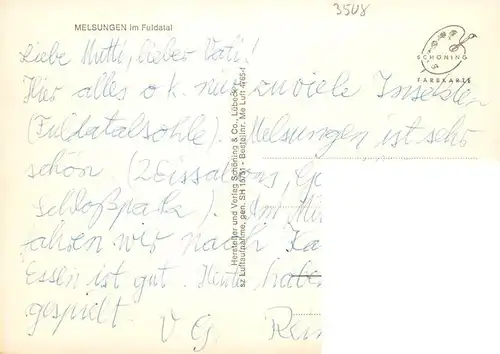 3548
MELSUNGEN im Fuldatal
SCHÖNING
FARBKARTE
Liebe Mutti, lieber Vati!
Hier alles o.k. nur zu viele Insekten
(Fuldatalsohle). Melsungen ist sehr
schön. (2 Eissalons,
Schloßpark). Am
fahren wir nach
Essen ist gut. Heute habe
gespielt.
V G.
Hersteller und Verlag Schöning & Co., Lübeck
sz Luftaufnahme, gen. SH 15/31 - Bestellnr. Me Luft 47654